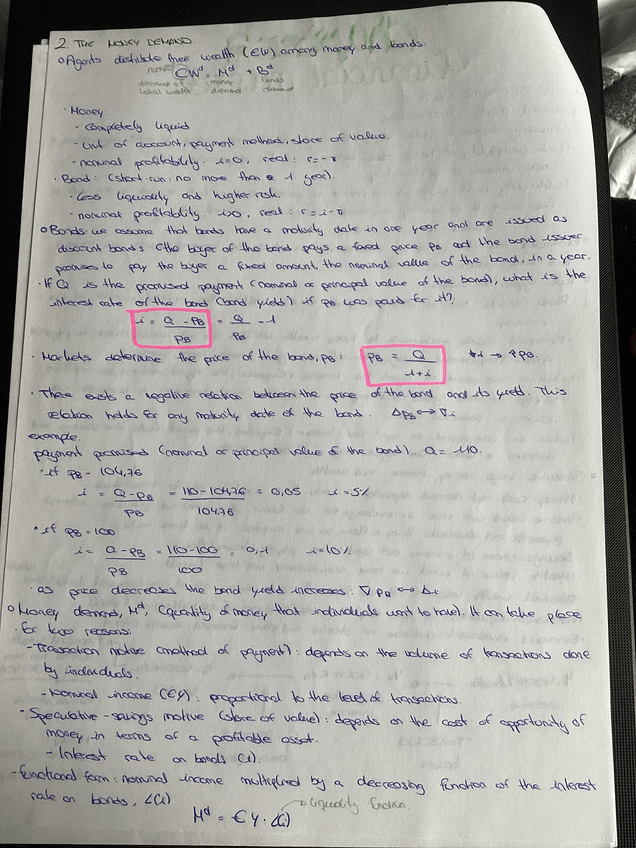 2. THE MONEY DEMAND.
○ Agents distribute their wealth (€W) among money and bonds:
nominal €Wᵈ = Mᵈ + Bᵈ
demand of total wealth money demand bonds demand
· Money:
- completely liquid
- unit of account, payment method, store of value.
- nominal profitability: i=0, real: r=-π
· Bond: (short-run, no more than a 1 year).
- less liquidity and higher risk.
- nominal profitability, i>0, real: r=i-π
○ Bonds: we assume that bonds have a maturity date in one year and are issued as
discount bonds (the buyer of the bond pays a fixed price PB and the bond issuer
promises to pay the buyer a fixed amount, the nominal value of the bond, in a year.
· If Q is the promised payment (nominal or principal value of the bond), what is the
interest rate of the bond (bond yield) if PB was paid for it?
i = Q - PB / PB = Q / PB - 1
· Markets determine the price of the bond, PB: PB = Q / 1+i ↓i → ↑PB.
· There exists a negative relation between the price of the bond and its yield. This
relation holds for any maturity date of the bond. ΔPB ↔ ∇i
example.
payment promised (nominal or principal value of the bond). Q = 110.
· if PB = 104,76
i = Q - PB / PB = 110-104,76 / 104,76 = 0,05 i=5%
· if PB = 100
i = Q - PB / PB = 110-100 / 100 = 0,1 i=10%
· as price decreases the bond yield increases: ∇PB ↔ Δi
○ Money demand, Mᵈ, (quantity of money that individuals want to have). It can take place
for two reasons:
- Transaction motive (method of payment): depends on the volume of transactions done
by individuals.
- Nominal income (€Y): proportional to the level of transactions.
- Speculative-savings motive (store of value): depends on the cost of opportunity of
money in terms of a profitable asset.
- Interest rate on bonds (i).
- functional form: nominal income multiplied by a decreasing function of the interest
rate on bonds, L(i)
Mᵈ = €Y · L(i) → liquidity function.